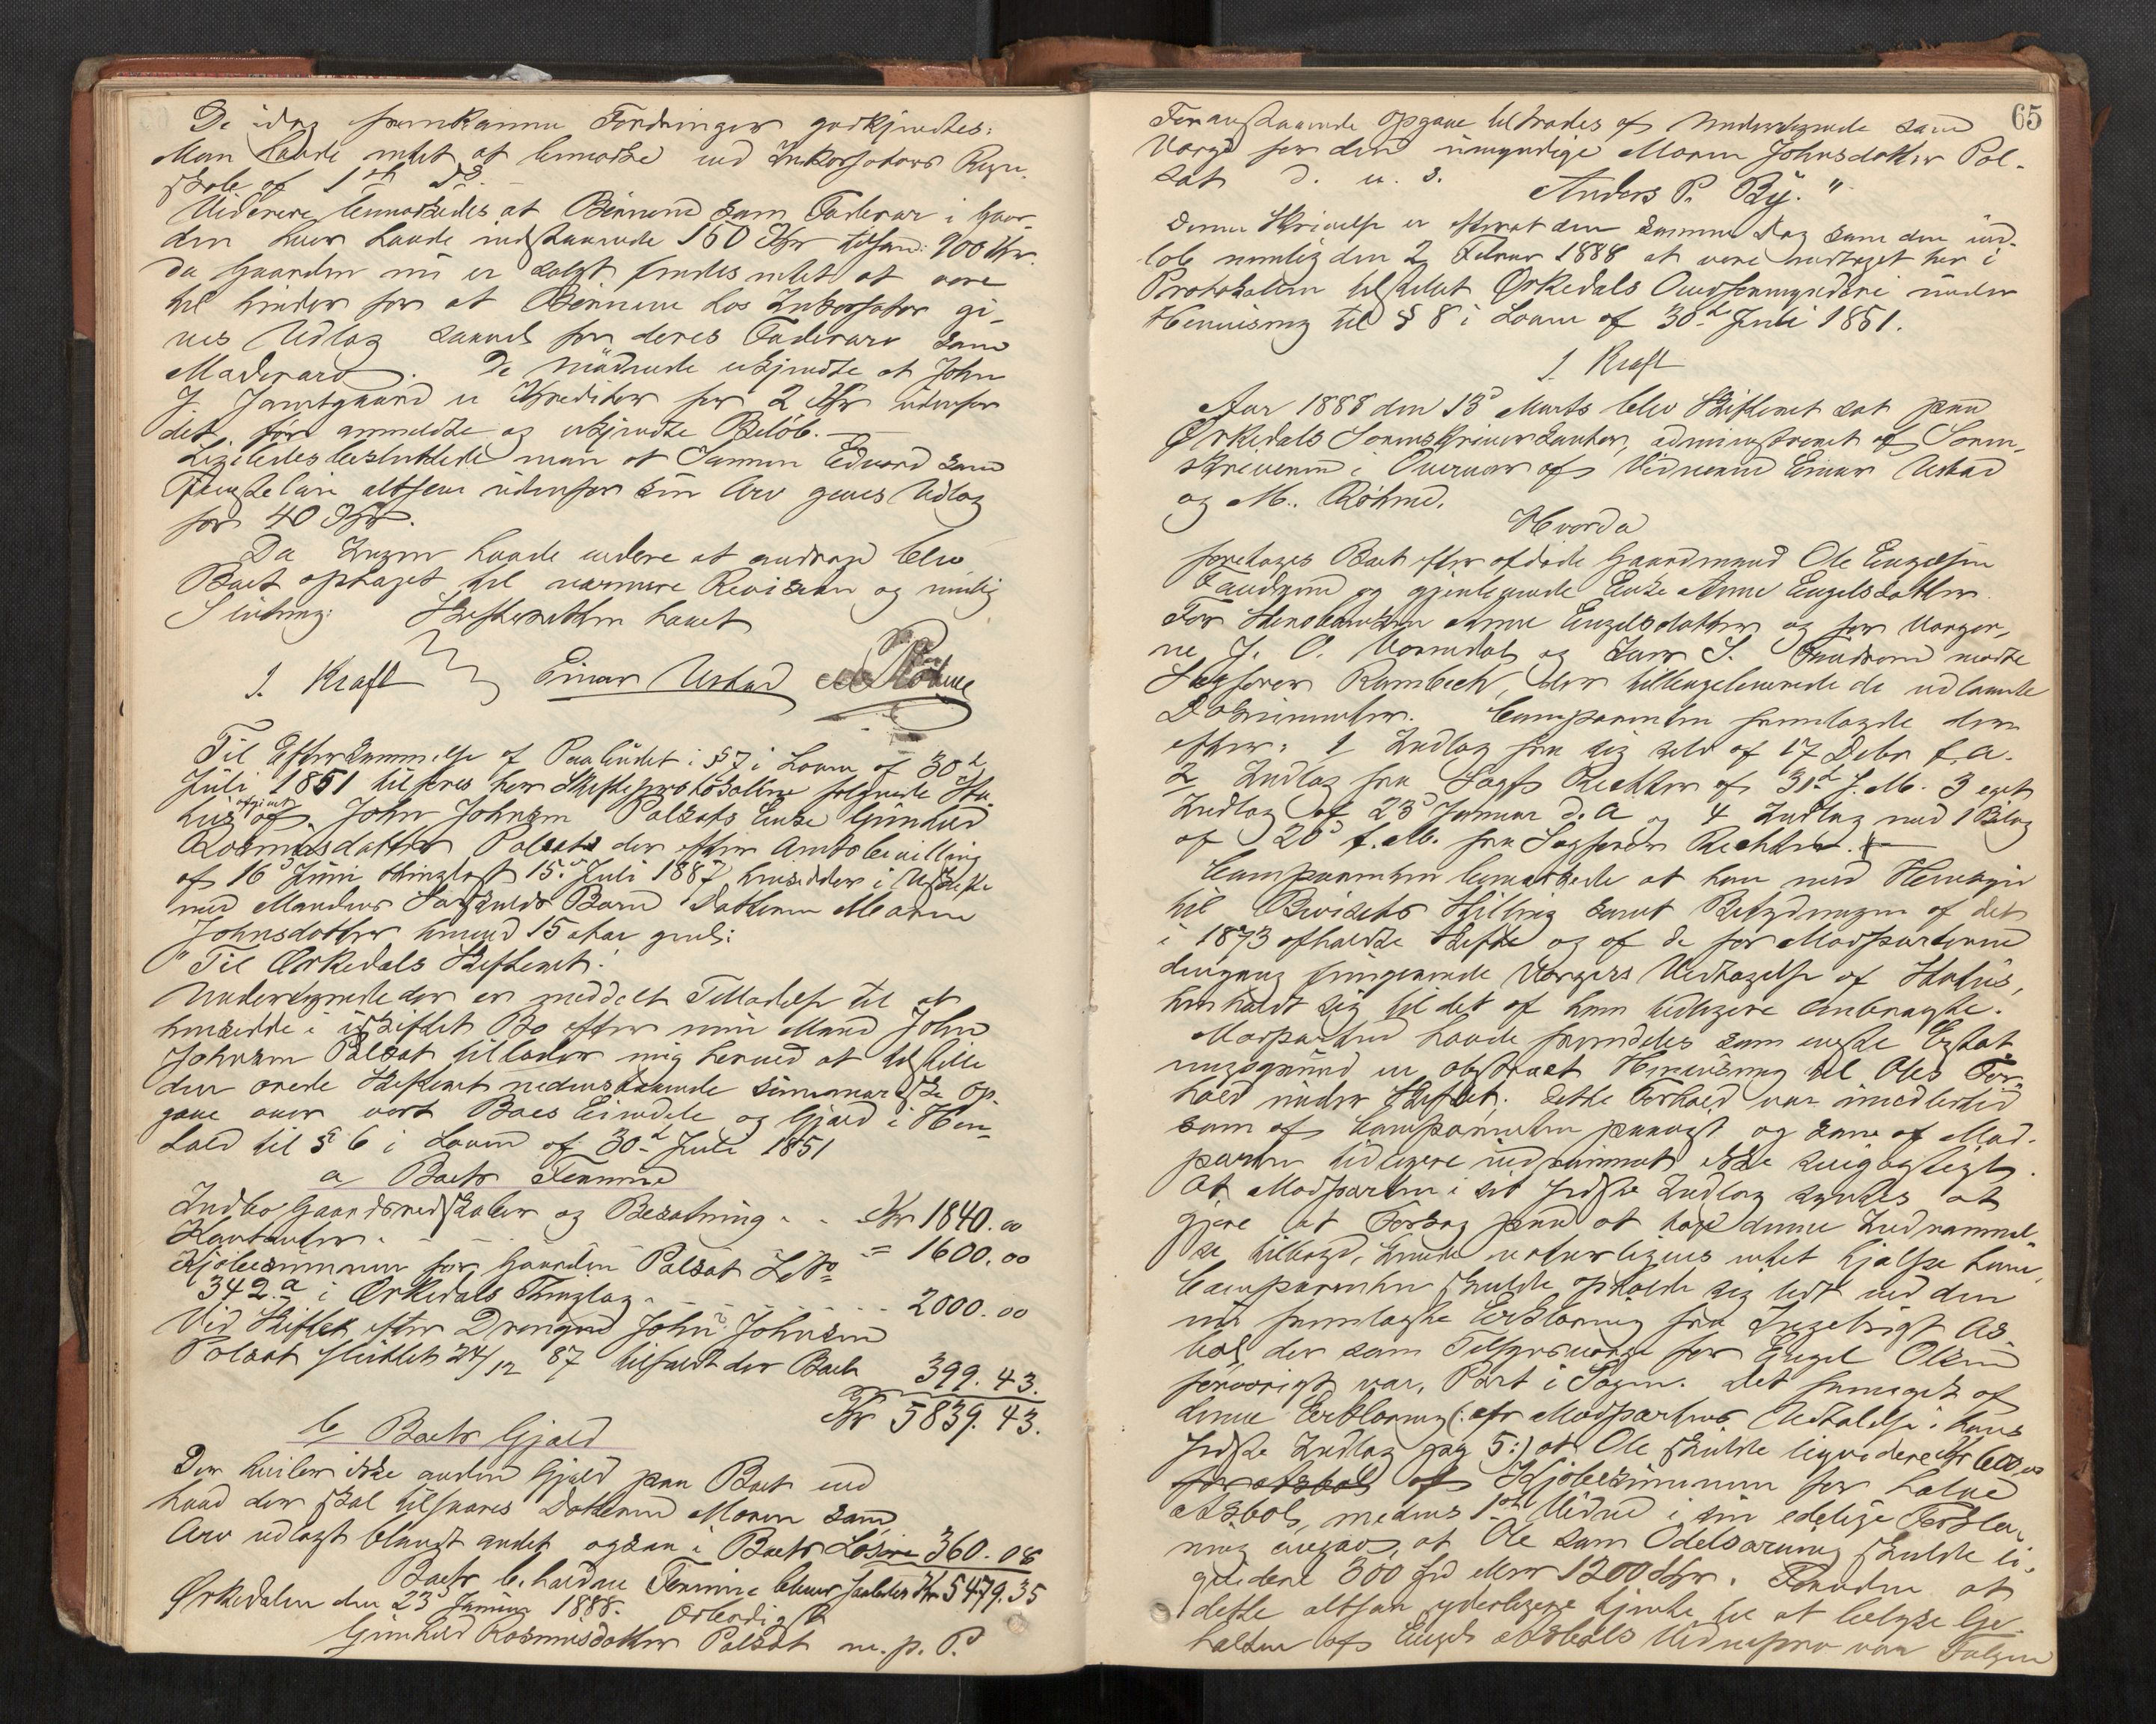 De idag fremkamne Fordringer godkjendtes:
Man havde intet at bemærke ved Inkassators Regn-
skab af 1st ds.
Videre bemærkedes at Børnene som Faderarv i Gaar-
den hver havde indestaaende 150 Kr tilsam: 900 Kr.
da Gaarden nu er solgt findes intet at være
til hinder for at Børnene hos Inkassator gi-
ves Udlæg saavel for deres Faderarv som
Mødrearv. De mødende erkjendte at John
J. Jamtgaard er Kreditor for 2 Kr udenfor
det før anmeldte og erkjendte Beløb. —
Ligeledes besluttede man at Sønnen Edvard som
Tjenesteløn altsaa udenfor sin Arv gives Udlæg
for 40 Kr.
Da Ingen havde videre at andrage blev
Boet optaget til nærmere Revision og mulig
Slutning. Skifteretten hævet
J. Kraft Einar Ustad M. Røhme
Til Efterkommelse af Paabudet i § 7 i Loven af 30te
Juli 1851 tilføres her Skifteprotokollen følgende Sta-
tus afgivet af John Johnsen Polsats Enke Gunhild
Rasmusdatter Polsat der efter Amtsbevilling
af 16d Juni thinglæst 15d Juli 1887 hensidder i Uskifte
med Mandens Særkulds Barn Datteren Maren
Johnsdatter henved 15 Aar gml:
"Til Ørkedals Skifteret!
Undertegnede der er meddelt Tilladelse til at
hensidde i uskiftet Bo efter min Mand John
Johnsen Polsat tillader mig herved at tilstille
den ærede Skifteret nedenstaaende summariske Op-
gave over vort Boes Eiendele og Gjæld i Hen-
hold til § 6 i Loven af 30te Juli 1851
a, Boets Formue
Indbo Gaardsredskaber og Besætning . . Kr 1840.00
Kontanter . – – – = 1600.00
Kjøbesummen for Gaarden Polsat LNo
342.a i Ørkedals Thinglag . – – – 2000.00
Ved Skiftet efter Drengen John Johnsen
Polsat sluttet 24/12 87 tilfaldt der Boet 399.43.
Kr 5839.43.
b, Boets Gjæld
Der hviler ikke anden Gjæld paa Boet end
hvad der skal tilsvares Datteren Maren som
Arv udlagt blandt andet ogsaa i Boets Løsøre 360.08
Boets beholdne Formue bliver saaledes Kr 5479.35
Ørkedalen den 23d Januar 1888. Ærbødigst
Gunhild Rasmusdatter Polsat m. p. P.
65
Foranstaaende Opgave tiltrædes af Undertegnede som
Værge for den umyndige Maren Johnsdatter Pol-
sat d. u. s. Anders P. By. "
Denne Skrivelse er efterat den samme Dag som den ind-
løb nemlig den 2 Februar 1888 at være indtaget her i
Protokollen tilstillet Ørkedals Overformynderi under
Henvisning til § 8 i Loven af 30te Juli 1851.
J. Kraft
Aar 1888 den 13d Marts blev Skifteret sat paa
Ørkedals Sorenskriverkontor, administreret af Soren-
skriveren i Overvær af Vidnerne Einar Ustad
og M. Røhme.
Hvorda
foretages Boet efter afdøde Gaardmand Ole Engelsen
og gjenlevende Enke Anne Engelsdatter.
For Anne Engelsdatter og for Værger-
ne J. O. Vormdal og Lars S. mødte
Sagfører Rambech, der tilbageleverede de udlaante
Dokumenter. Comparenten fremlagde der-
efter: 1 Indlæg fra sig selv af 17 Debr f.a.
2 Indlæg fra Sagf. Richter af 31te J.M. 3 eget
Indlæg af 23d Januar d.A og 4 Indlæg med 1 Bilag
af 20d f.M. fra Sagfører Richter.
Comparenten bemærkede at han med Hensyn
til Bevisets Stilling samt Betydningen af det
i 1873 afholdte Skifte og af de for Modparterne
dengang fungerende Værgers Vedtagelse af Status,
henholdt sig til det af ham tidligere anbragte.
Modparten havde fremdeles som eneste
grund en abstract Henvisning til Oles For-
hold under Skiftet; dette Forhold var imidlertid
som af Comparenten paavist og som af Mod-
parten tidligere indrømmet ikke svigagtigt.
At Modparten i sit sidste Indlæg syntes at
gjøre et Forsøg paa at tage denne Indrømmel-
se tilbage, kunde naturligvis intet hjælpe ham,
Comparenten skulde opholde sig lidt ved den
nu fremlagte Erklæring fra Ingebrigt As-
bøl, der som Tilsynsværge for Engel Olsen
forøvrigt var Part i Sagen. Det fremgik af
denne Erklæring (: cfr Modpartens Udtalelse i hans
sidste Indlæg pag 5:) at Ole skulde liqvidere Kr 600,00
for Asbøl af Kjøbesummen for halve
Asbøl, medens 1ste Vidne i sin edelige Forkla-
ring opgav, at Ole som Odelsarving skulde li-
qvidere 300 Spd eller 1200 Kr. Foruden at
dette altsaa yderligere tjente til at belyse Ge-
halten af Engel Asbøls Vidneprov var Følgen